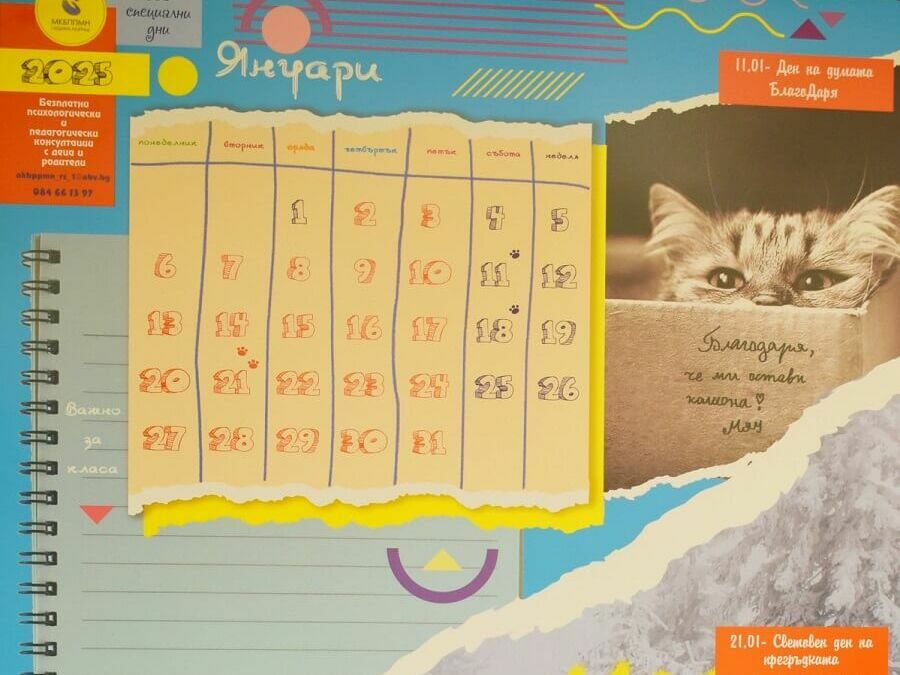 МКБППМН
специални
дни
2025
Безплатни
психологически
и
педагогически
консултации
с деца и
родители
okbppmn_rz_1@abv.bg
084 66 13 97
Януари
11,01- Ден на думата
БлагоДаря
понеделник вторник сряда четвъртък петък събота неделя
1 2 3 4 5
6 7 8 9 10 11 12
13 14 15 16 17 18 19
20 21 22 23 24 25 26
27 28 29 30 31
Благодаря,
че ми остави
кашона
Мяу
Важно
за
класа
21,01- Световен ден на
прегръдката